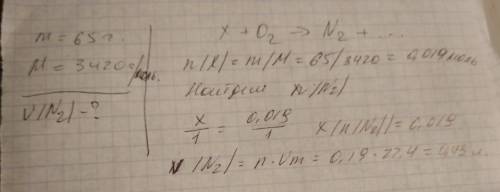 m = 65 г.
M = 3420 г/моль.
V(N2) - ?
x + O2 → N2 + ...
n(X) = m/M = 65/3420 = 0,019 моль
Найдем n(N2)
x/1 = 0,019/1 x(n(N2)) = 0,019
V(N2) = n·Vm = 0,19·22,4 = 4,93 л.